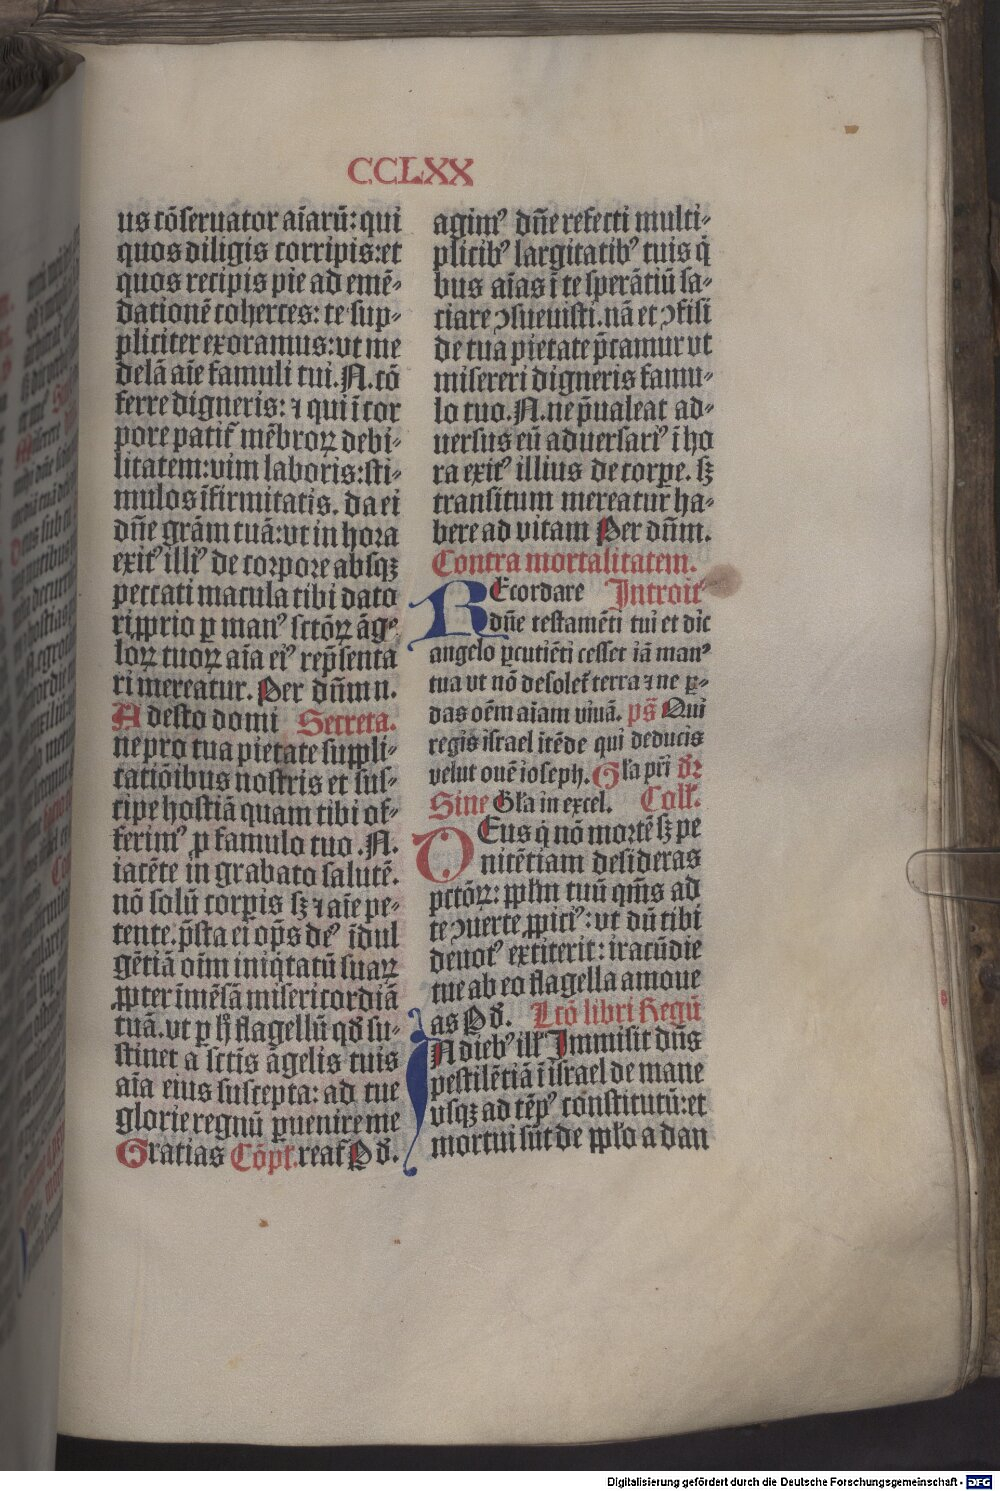 CCLXX
us cōseruator aīarū: qui
quos diligis corripis: et
quos recipis pie ad emē-
dationē coherces: te sup-
pliciter exoramus: vt me
delā aīe famuli tui. N. cō
ferre digneris: ⁊ qui ī cor
pore patit᷑ mēbroꝝ debi-
litatem: vim laboris: sti-
mulos īfirmitatis. da ei
dn̄e grām tuā: vt in hora
exitꝰ illiꝰ de corpore absqꝫ
peccati macula tibi dato
ri ꝓprio ꝑ manꝰ sctōꝝ āge
loꝝ tuoꝝ aīa eiꝰ rep̄senta
ri mereatur. Per dn̄m n.
Adesto domi Secreta.
ne pro tua pietate suppli-
catiōibus nostris et sus-
cipe hostiā quam tibi of-
ferimꝰ ꝓ famulo tuo. N.
iacēte in grabato salutē.
nō solū corꝑis sꝫ ⁊ aīe pe-
tente. p̄sta ei op̄s deꝰ īdul
gētiā oīm iniq̇tatū suaꝝ
ꝓpter īmēsā misericordiā
tuā. vt ꝑ h̄ flagellū qd̄ su-
stinet a sctis āgelis tuis
aīa eius suscepta: ad tue
glorie regnū ꝑuenire me
Gratias Cōpl̄. reat᷑ Pd̄.
agimꝰ dn̄e refecti multi-
plicibꝰ largitatibꝰ tuis q̇
bus aīas ī te sperātiū sa-
ciare ꝯsueuisti. nā et ꝯfisi
de tua pietate p̄camur vt
misereri digneris famu-
lo tuo. N. ne p̄ualeat ad-
uersus eū aduersariꝰ ī ho
ra exitꝰ illius de corꝑe. sꝫ
transitum mereatur ha-
bere ad vitam Per dn̄m.
Contra mortalitatem.
REcordare Introit᷑
dn̄e testamēti tui et dic
angelo ꝑcutiēti cesset iā manꝰ
tua vt nō desolet᷑ terra ⁊ ne ꝑ-
das oēm aīam viuā. ps̄ Qui
regis israel itēde qui deducis
velut ouē ioseph. Gl̄a pr̄i dr̄
Sine Gl̄a in excel. Coll̄.
DEus q̇ nō mortē sꝫ pe
nitētiam desideras
pctōꝝ: ppl̄m tuū qm̄s ad
te ꝯuerte ꝓpiciꝰ: vt dū tibi
deuotꝰ extiterit: iracūdie
tue ab eo flagella amoue
as Pd̄. Lc̄ō libri Regū
IN diebꝰ ill̄ Immisit dn̄s
pestilētiā ī israel de mane
vsqꝫ ad tēpꝰ constitutū: et
mortui sūt de ppl̄o a dan
Digitalisierung gefördert durch die Deutsche Forschungsgemeinschaft - DFG